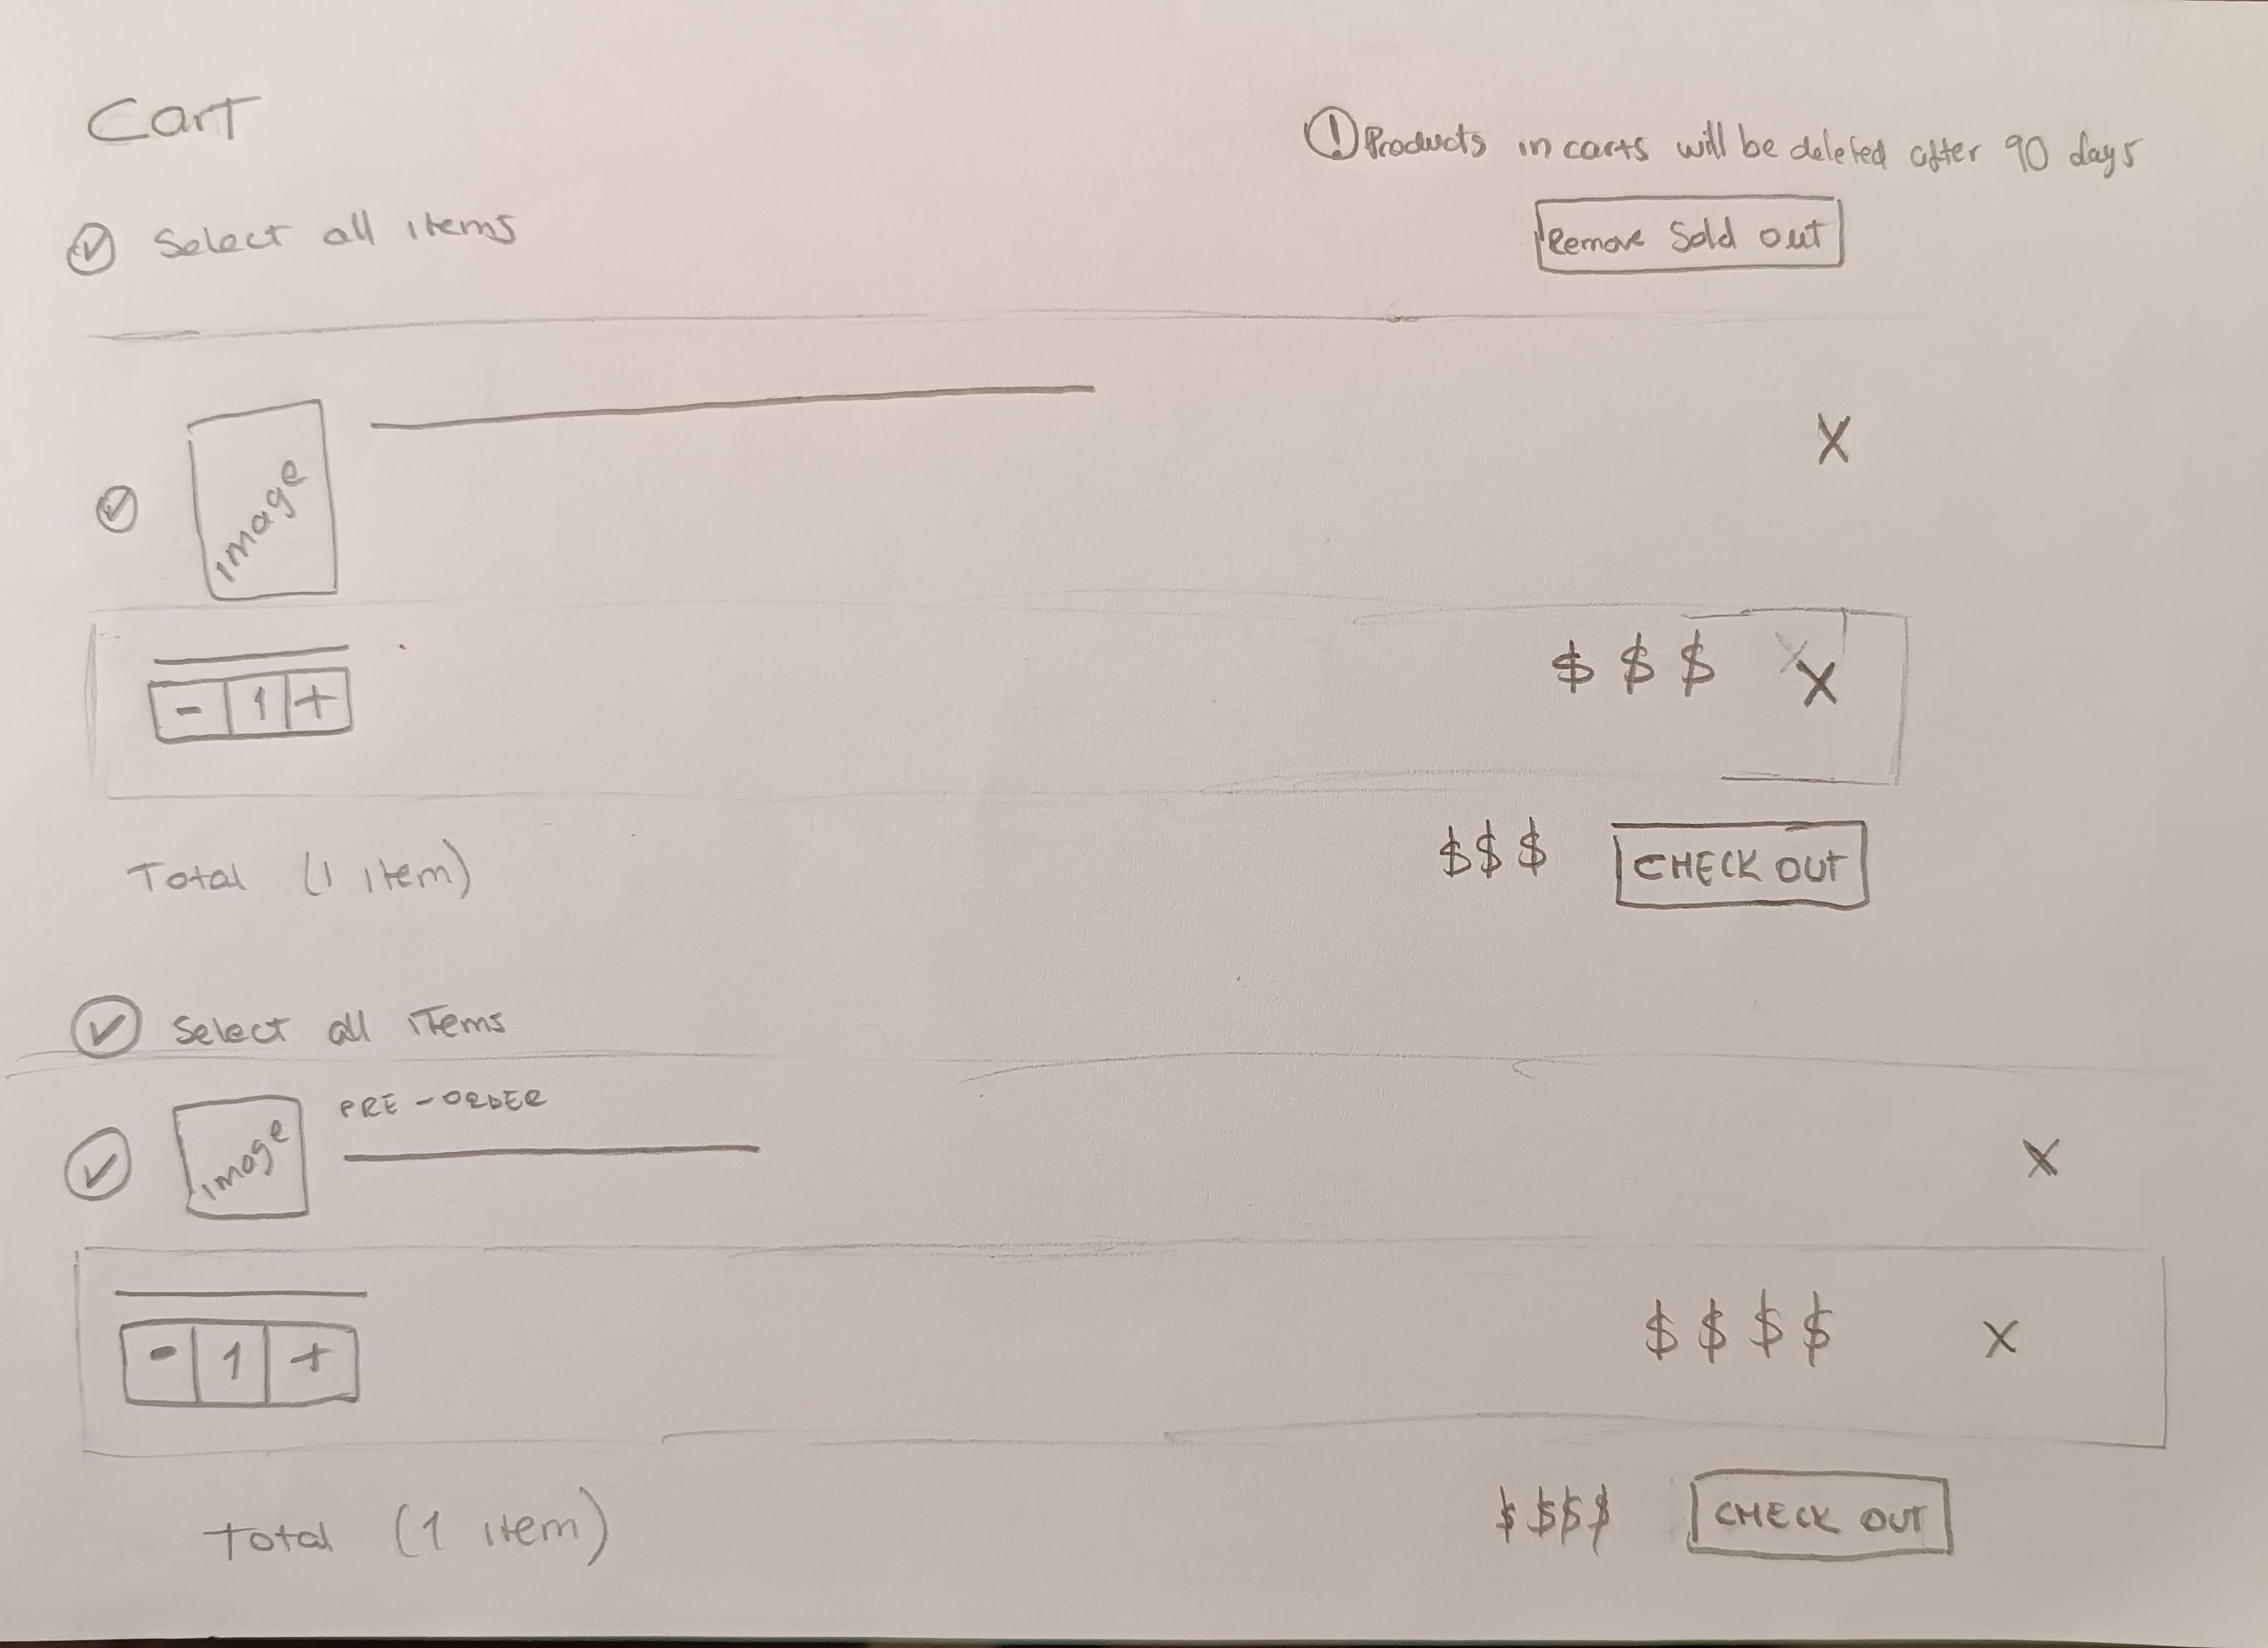 Cart
! Products in carts will be deleted after 90 days
Select all items
Remove Sold out
image
X
- 1 +
$ $ $ X
Total (1 item)
$$$ CHECK OUT
Select all items
PRE-ORDER
image
X
- 1 +
$ $ $ $ X
Total (1 item)
$$$$ CHECK OUT